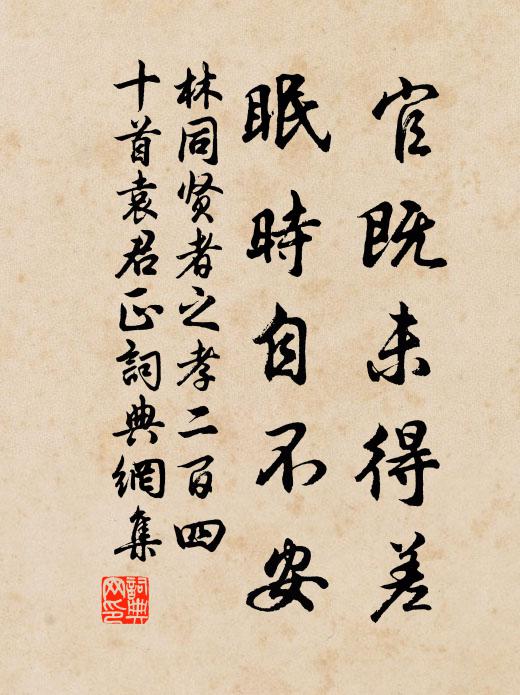 官既未得差
眠時自不安
林同贤者之孝二百四
十首袁君正詞典網集
詞典
网印